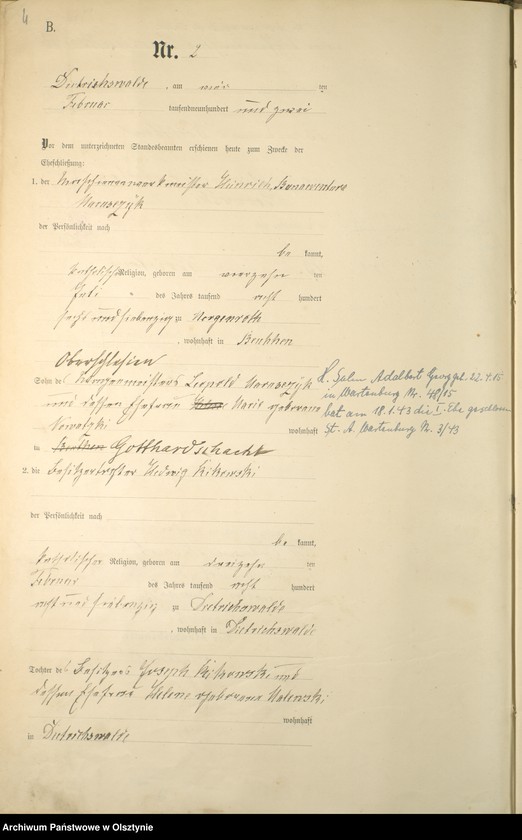 4
B.
Nr. 2
Dietrichswalde, am vier ten
Februar tausendneunhundert und zwei
Vor dem unterzeichneten Standesbeamten erschienen heute zum Zwecke der
Eheschließung:
1. der Heinrich Bonaventura
der Persönlichkeit nach
be kannt,
katholischer Religion, geboren am vierzehn ten
Juli des Jahres tausend acht hundert
sechs und siebenzig zu Morgenroth
, wohnhaft in Beuthen
Oberschlesien
Sohn des Leopold
und dessen Ehefrau Marie geborene
wohnhaft
in Beuthen Gotthardschacht
2. die Besitzertochter Hedwig
der Persönlichkeit nach
be kannt,
katholischer Religion, geboren am dreizehn ten
Februar des Jahres tausend acht hundert
acht und siebenzig zu Dietrichswalde
, wohnhaft in Dietrichswalde
Tochter des Besitzers Joseph und
dessen Ehefrau Helene geborene
wohnhaft
in Dietrichswalde
Adalbert Georg geb. 22.4.15
in Wartenburg Nr. 48/15
hat am 18.1.43 die I. Ehe geschlossen
St. A. Wartenburg Nr. 3/43
Archiwum Państwowe w Olsztynie